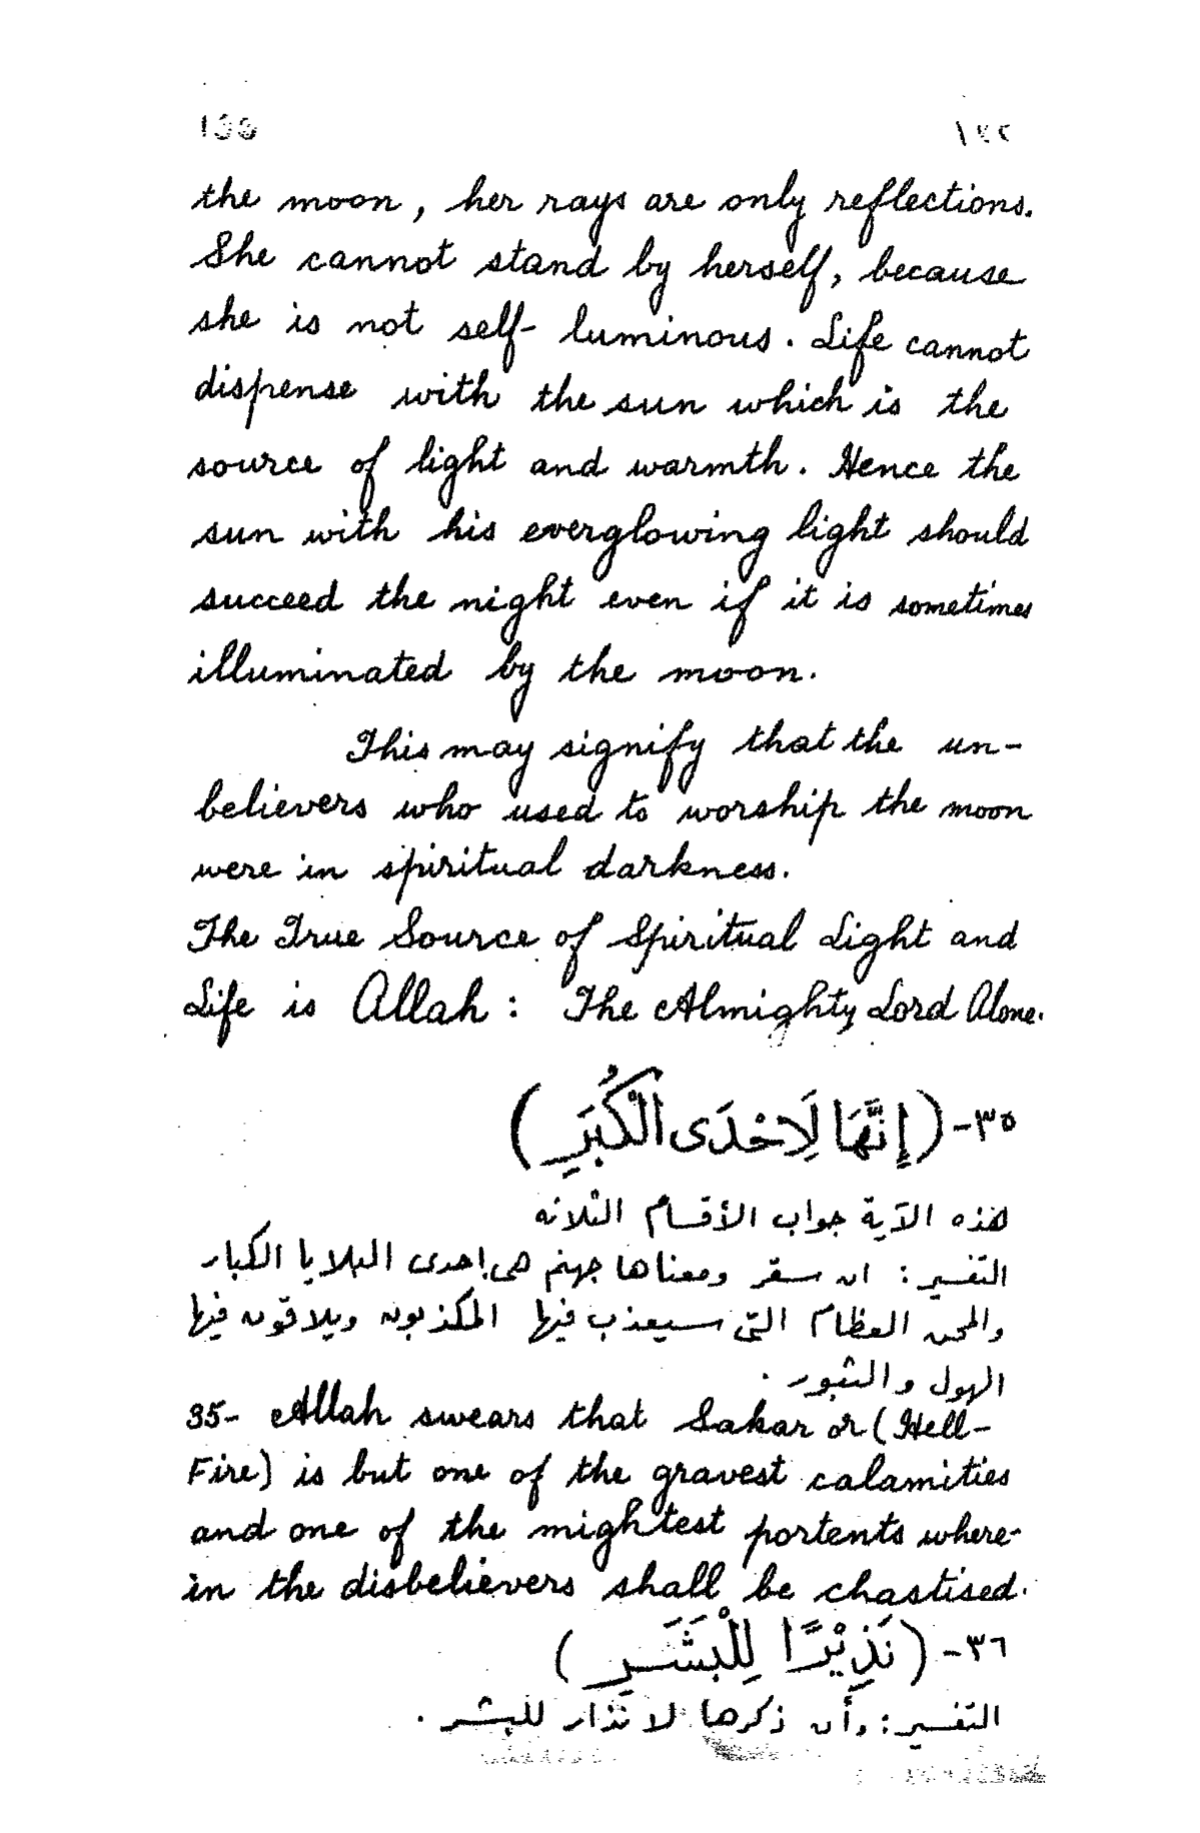 the moon, her rays are only reflections.
She cannot stand by herself, because
she is not self- luminous. Life cannot
dispense with the sun which is the
source of light and warmth. Hence the
sun with his everglowing light should
succeed the night even if it is sometimes
illuminated by the moon.
This may signify that the un-
believers who used to worship the moon
were in spiritual darkness.
The True Source of Spiritual Light and
Life is Allah: The Almighty Lord Alone.
٣٥- (إِنَّهَا لَإِحْدَى الْكُبَرِ)
هذه الآية جواب الأقسام الثلاثه
التفسير: ان سقر ومعناها جهنم هي إحدى البلايا الكبار
والمحن العظام التي سيعذب فيها المكذبون ويلاقون فيها
الهول والثبور.
35- Allah swears that Sakar or (Hell-
Fire) is but one of the gravest calamities
and one of the mightest portents where-
in the disbelievers shall be chastised.
٣٦- (نَذِيْرًا لِلْبَشَرِ)
التفسير: وأن ذكرها لانذار للبشر.